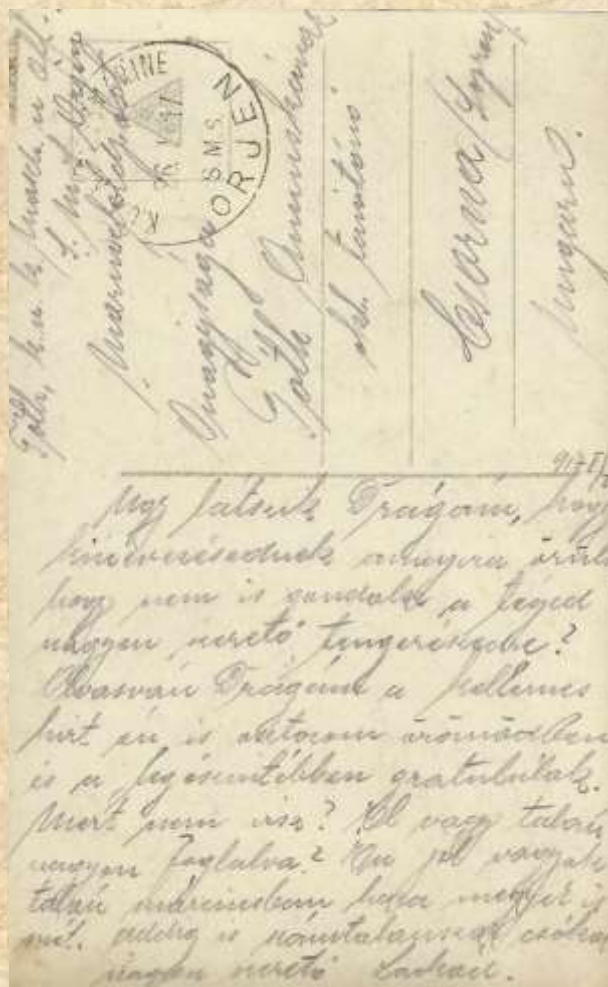 Góth, k.u.k.
S.M.S. Orjen
Marinefeldpostamt
K.u.K. MARINE
S.M.S. ORJEN
Nagysága
Góth Annuskának
okl. tanítónő
Csorna / Sopron
Ungarn.
917 II/
Úgy látszik Drágám, hogy
kinevezésednek annyira örülsz
hogy nem is gondolsz a téged
nagyon szerető tengerészedre?
Olvasván Drágám a kellemes
hírt én is osztozom örömödben
és a legőszintébben gratulálok.
Mert nem írsz? El vagy talán
nagyon foglalva? Én jól vagyok
talán márciusban haza megyek is
addig is számtalanszor csókol
nagyon szerető